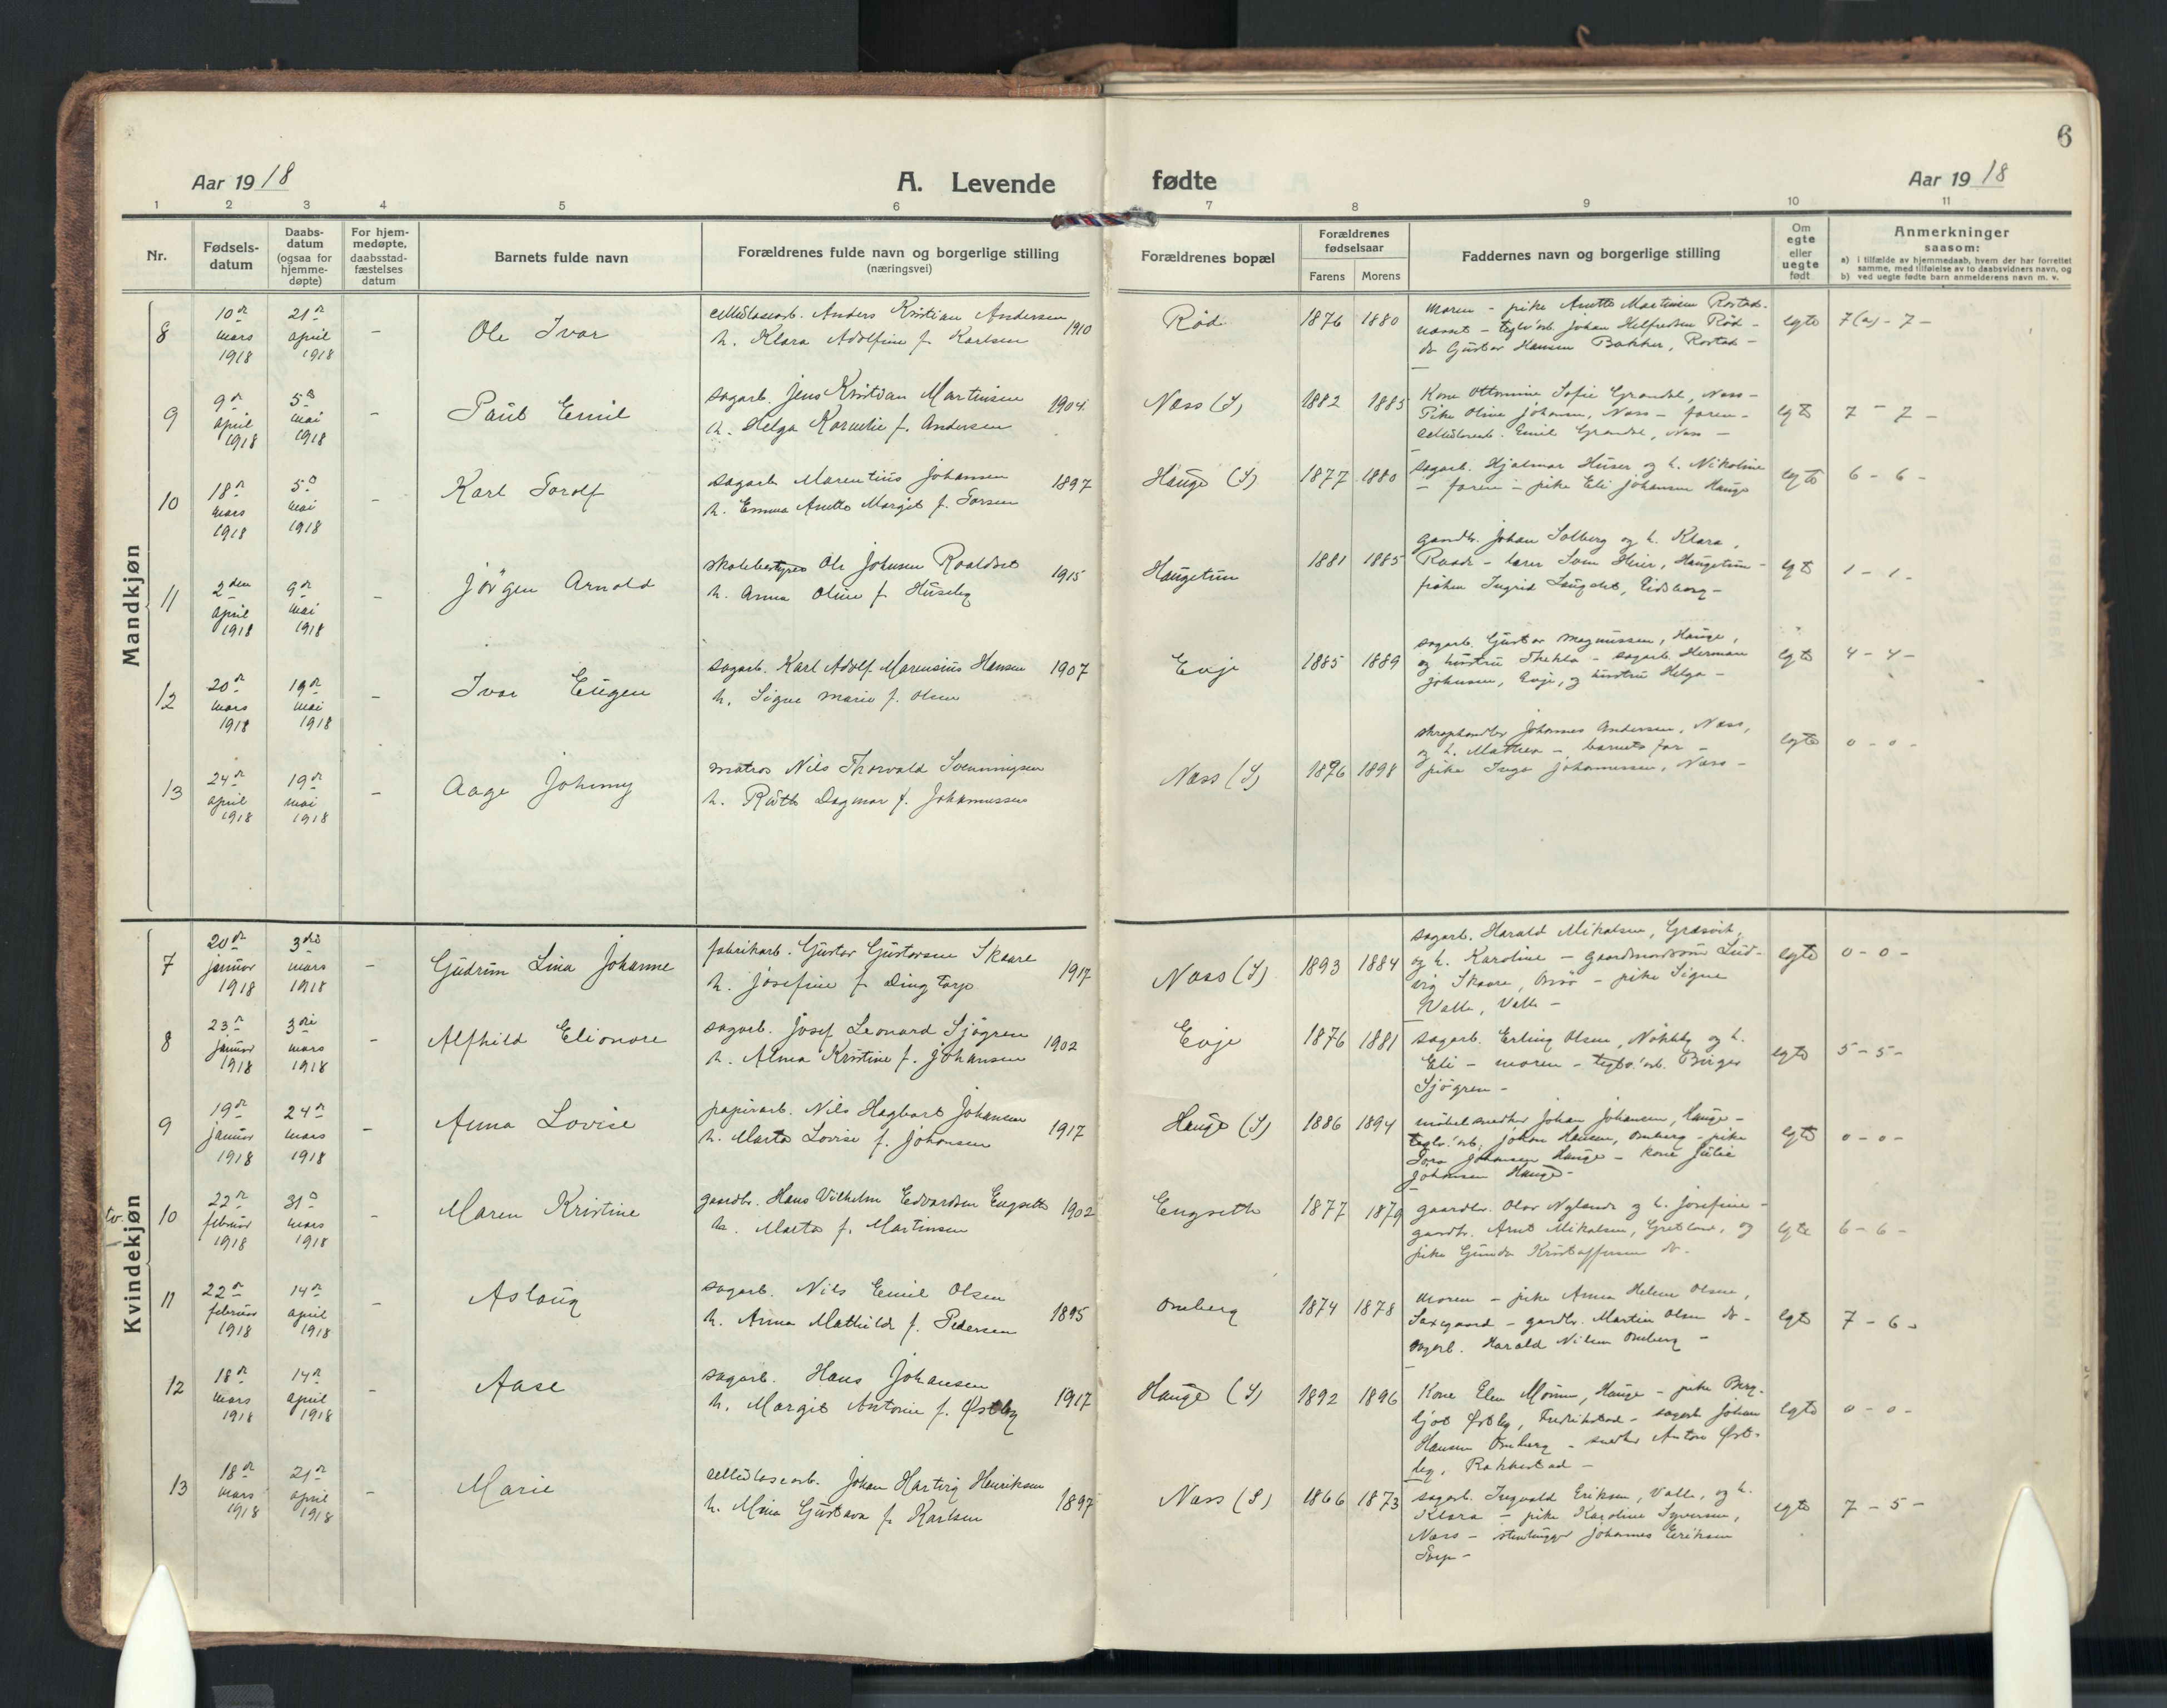 6
Aar 1918
A. Levende
fødte
Aar 1918
1 2 3 4 5 6 7 8 9 10 11
Nr.
Fødsels-
datum
Daabs-
datum
(ogsaa for
hjemme-
døpte)
For hjem-
medøpte,
daabsstad-
fæstelses
datum
Barnets fulde navn
Forældrenes fulde navn og borgerlige stilling
(næringsvei)
Forældrenes bopæl
Forældrenes
fødselsaar
Farens Morens
Faddernes navn og borgerlige stilling
Om
egte
eller
uegte
født
Anmerkninger
saasom:
a) i tilfælde av hjemmedaab, hvem der har forrettet
samme, med tilføielse av to daabsvidners navn, og
b) ved uegte fødte barn anmelderens navn m. v.
Mandkjøn
8
10de
mars
1918
21de
april
1918
-
Ole Ivar
celluloscarb. Anders Kristian Andersen
h. Klara Adolfine f. Karlsen
1910
Rød
1876 1880
moren - pike Anette Martinsen Rostad-
næsset - teglv.arb. Johan Helfredsen Rød -
do Gustav Hansen Bakker, Rostad -
egte
7(a) - 7 -
9
9de
april
1918
5te
mai
1918
-
Paul Emil
sagarb. Jens Kristian Martinsen
h. Helga Kornelie f. Andersen
1904
Næss (S)
1882 1885
Kone Ottomine Sofie Grandal, Næss -
Pike Oline Johansen, Næss - faren -
cellulosearb. Emil Grandal, Næss -
egte
7 - 7 -
10
18de
mars
1918
5te
mai
1918
-
Karl Torolf
sagarb. Marentius Johansen
h. Emma Anette Margit f. Torsen
1897
Hauge (S)
1877 1880
sagarb. Hjalmar Huser og h. Nikoline
- faren - pike Eli Johansen Hauge
egte
6 - 6 -
11
2den
april
1918
9de
mai
1918
-
Jørgen Arnold
skolebestyrer Ole Johnsen Roaldset
h. Anna Oline f. Huseby
1915
Haugetun
1881 1885
gaardbr. Johan Solberg og h. Klara,
Raade - lærer Sven Heier, Haugetun -
frøken Ingrid Laugslet, Eidsberg -
egte
1 - 1 -
12
20de
mars
1918
19de
mai
1918
-
Ivar Eugen
sagarb. Karl Adolf Marensius Hansen
h. Signe Marie f. Olsen
1907
Evje
1885 1889
sagarb. Gustav Magnussen, Hauge,
og hustru Thekla - sagarb. Herman
Johansen, Evje, og hustru Helga -
egte
4 - 4 -
13
24de
april
1918
19de
mai
1918
-
Aage Johnny
matros Nils Thorvald Svenningsen
h. Ruth Dagmar f. Johannessen
Næss (S)
1896 1898
skraphandler Johannes Andersen, Næss,
og h. Mathea - barnets far -
pike Inga Johannessen, Næss -
egte
0 - 0 -
Kvindekjøn
7
20de
januar
1918
3die
mars
1918
-
Gudrun Lina Johanne
fabrikarb. Gustav Gustavsen Skaare
h. Josefine f. Dingtorp
1917
Næss (S)
1893 1884
sagarb. Harald Mikalsen, Græsvik,
og h. Karoline - gaardmandssøn Lud-
vig Skaare, Onsø - pike Signe
Valle, Valle -
egte
0 - 0 -
8
23de
januar
1918
3die
mars
1918
-
Alfhild Elionore
sagarb. Josef Leonard Sjøgren
h. Alma Kristine f. Johansen
1902
Evje
1876 1881
sagarb. Erling Olsen, Nøkleby og h.
Eli - moren - teglv.arb. Birger
Sjøgren -
egte
5 - 5 -
9
19de
januar
1918
24de
mars
1918
-
Anna Lovise
papirarb. Nils Hagbart Johansen
h. Marta Lovise f. Johansen
1917
Hauge (S)
1886 1894
møbelsnedker Johan Johansen, Hauge -
teglv.arb. Johan Hansen, Omberg - pike
Tora Johansen Hauge - kone Julie
Johansen Hauge -
egte
0 - 0 -
tv.
10
22de
februar
1918
31te
mars
1918
-
Maren Kristine
gaardbr. Hans Vilhelm Edvardsen Engseth
h. Marta f. Martinsen
1902
Engseth
1877 1879
gaardbr. Olav Nylande og h. Josefine -
gaardbr. Arnt Mikalsen, Gretland, og
pike Gunda Kristoffersen do -
egte
6 - 6 -
11
22de
februar
1918
14de
april
1918
-
Aslaug
sagarb. Nils Emil Olsen
h. Anna Mathilde f. Pedersen
1895
Omberg
1874 1878
moren - pike Anna Helene Olsen,
Saxegaard - gardbr. Martin Olsen do -
sagarb. Harald Nilsen Omberg -
egte
7 - 6 -
12
18de
mars
1918
14de
april
1918
-
Aase
sagarb. Hans Johansen
h. Margit Antonie f. Østby
1917
Hauge (S)
1892 1896
Kone Elen Moum, Hauge - pike Berg-
ljot Østby, Fredrikstad - sagarb. Johan
Hansen Omberg - snedker Anton Øst-
by, Rakkestad -
egte
0 - 0 -
13
18de
mars
1918
21de
april
1918
-
Marie
cellulosearb. Johan Hartvig Henriksen
h. Mina Gustava f. Karlsen
1897
Næss (S)
1866 1873
sagarb. Ingvald Eriksen, Valle, og h.
Klara - pike Karoline Syversen,
Næss - stenhugger Johannes Eriksen
Torp -
egte
7 - 5 -